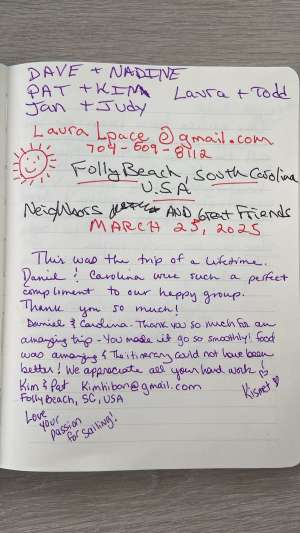 DAVE + NADINE
PAT + KIM
Laura + Todd
Jan + Judy
Laura Lpace@gmail.com
704-609-8112
Folly Beach, South Carolina
U.S.A
Neighbors AND Great Friends
MARCH 25, 2025
This was the trip of a lifetime.
Daniel & Carolina were such a perfect
compliment to our happy group.
Thank you so much!
Daniel & Carolina - Thank you so much for an
amazing trip - You made it go so smoothly! food
was amazing & the itinerary could not have been
better! We appreciate all your hard work!
Kim & Pat Kimhibon@gmail.com
Folly beach, SC, USA
Kismet
Love
your
passion
for sailing!